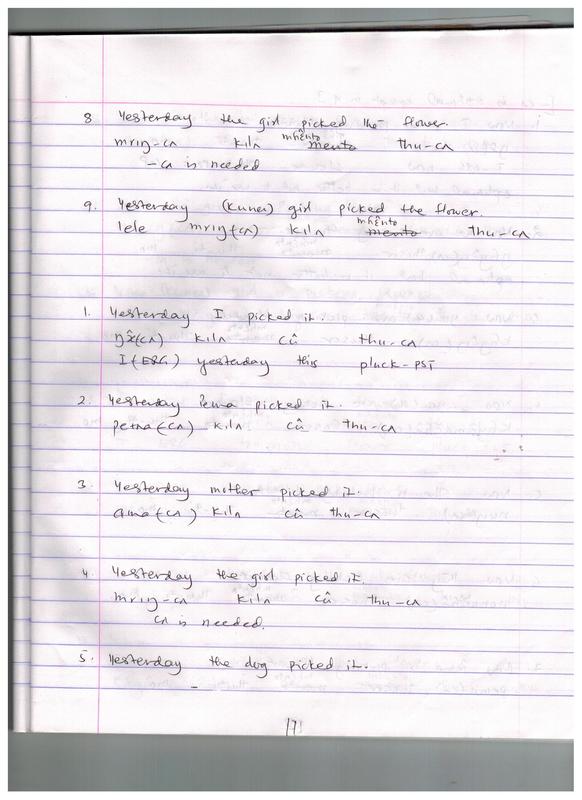 8 Yesterday the girl picked the flower.
mrɪŋ-cʌ kilʌ mhẽnto mento thu-cʌ
-cʌ is needed
9. Yesterday (Kunu) girl picked the flower.
lele mrɪŋ(cʌ) kilʌ mhẽnto mento thu-cʌ
1. Yesterday I picked it.
(cʌ) kilʌ cû thu-cʌ
I (ERG) yesterday this pluck-PST
2. Yesterday Pema picked it.
pema (cʌ) kilʌ cû thu-cʌ
3. Yesterday mother picked it.
ama (cʌ) kilʌ cû thu-cʌ
4. Yesterday the girl picked it.
mrɪŋ-cʌ kilʌ cû thu-cʌ
cʌ is needed.
5. Yesterday the dog picked it.
-
17